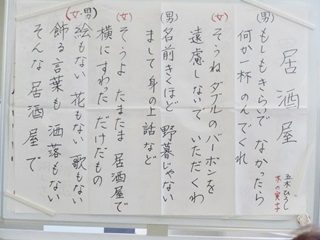 居酒屋
五木ひろし
木の実ナナ
(男)もしもきらいで なかったら
何か一杯 のんでくれ
(女)そうね ダブルの バーボンを
遠慮しないで いただくわ
(男)名前きくほど 野暮じゃない
まして 身の上 話など
(女)そうよ たまたま 居酒屋で
横にすわった だけだもの
(女・男)絵もない 花もない 歌もない
飾る言葉も 洒落もない
そんな 居酒屋で